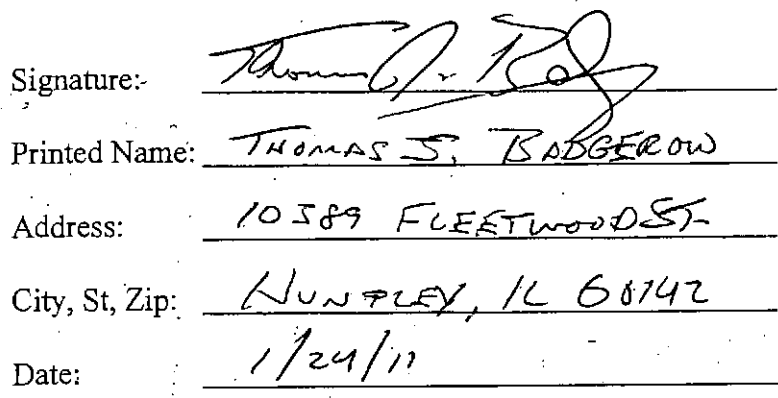 Signature: Thomas J. B
Printed Name: THOMAS J. BADGEROW
Address: 10589 FLEETWOOD ST
City, St, Zip: HUNTLEY, IL 60142
Date: 1/24/11